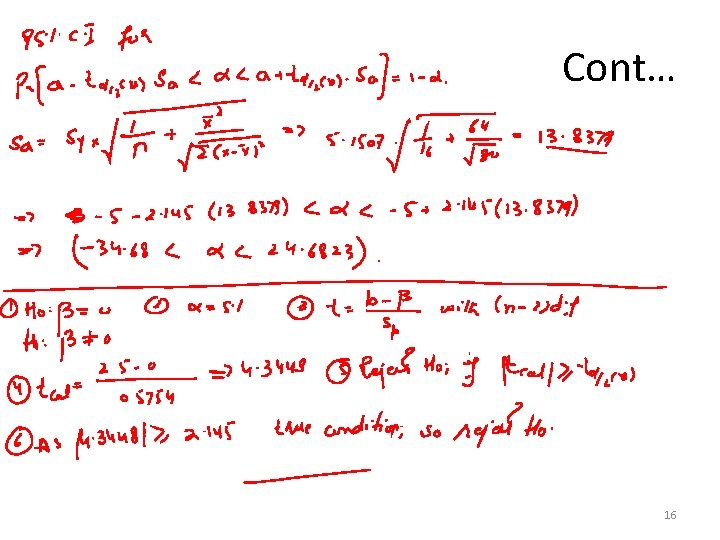 Cont...
95% C.I for
Pr[a - t_{α/2(v)} Sa < α < a + t_{α/2(v)} · Sa] = 1 - α.
Sa = S_{yx} √(1/n + x̄²/√Σ(x-x̄)²) => 5.1507 · √(1/16 + 64/√80) = 13.8379
=> -5 - 2.145 (13.8379) < α < -5 + 2.145 (13.8379)
=> (-34.68 < α < 24.6823).
① Ho: β = 0 ② α = 5% ③ t = (b - β)/S_b with (n-2)d.f
H1: β ≠ 0
④ t_cal = (2.5 - 0)/0.5754 => 4.3448 ⑤ Reject Ho, if |t_cal| ≥ t_{α/2(v)}
⑥ As |4.3448| ≥ 2.145 true condition, so reject Ho.
16